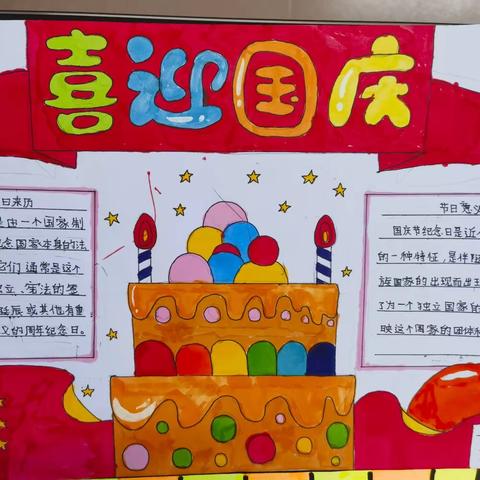 喜迎国庆
日来历
是由一个国家制
念国家本身的法
它们通常是这
立、宪法的签
诞辰或其他有重
义的周年纪念日。
节日意义
国庆节纪念日是近
的一种特征,是伴随
族国家的出现而出现
了为一个独立国家的
映这个国家的团体和